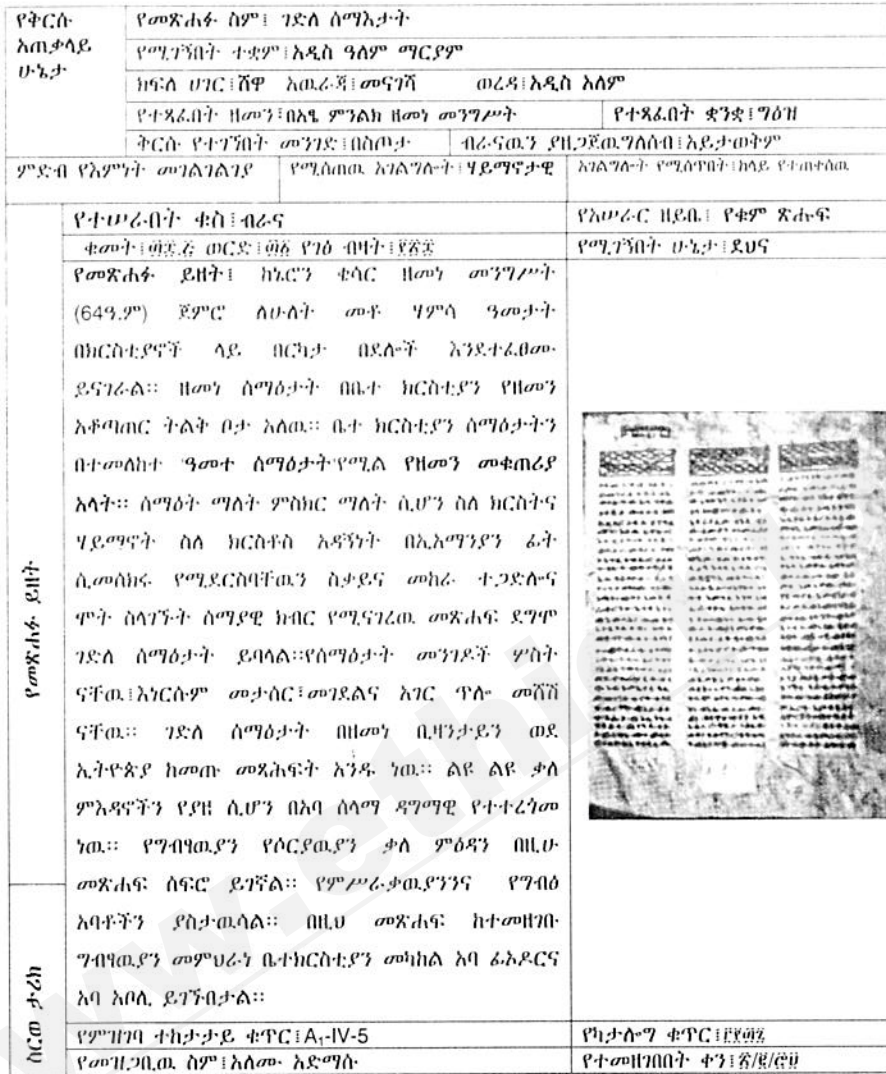 የቅርሱ አጠቃላይ ሁኔታ
የመጽሐፉ ስም፤ ገድለ ሰማእታት
የሚገኝበት ተቋም፤አዲስ ዓለም ማርያም
ክፍለ ሀገር፤ሸዋ አዉራጃ፤መናገሻ ወረዳ፤አዲስ አለም
የተጻፈበት ዘመን፤በአፄ ምንልክ ዘመነ መንግሥት የተጻፈበት ቋንቋ፤ግዕዝ
ቅርሱ የተገኘበት መንገድ፤በስጦታ ብራናዉን ያዘጋጀዉግለሰብ፤አይታወቅም
ምድብ የእምነት መገልገልገያ የሚሰጠዉ አገልግሎት፤ሃይማኖታዊ አገልግሎት የሚሰጥበት፤ከላይ የተጠቀሰዉ
የተሠራበት ቁስ፤ብራና የአሠራር ዘይቤ፤ የቁም ጽሑፍ
ቁመት፤ ወርድ፤ የገፅ ብዛት፤ የሚገኝበት ሁኔታ፤ደህና
የመጽሐፉ ይዘት
የመጽሐፉ ይዘት፤ ከኔሮን ቄሳር ዘመነ መንግሥት
(64ዓ.ም) ጀምሮ ለሁለት መቶ ሃምሳ ዓመታት
በክርስቲያኖች ላይ በርካታ በደሎች እንደተፈፀሙ
ይናገራል፡፡ ዘመነ ሰማዕታት በቤተ ክርስቲያን የዘመን
አቆጣጠር ትልቅ ቦታ አለዉ፡፡ ቤተ ክርስቲያን ሰማዕታትን
በተመለከተ ዓመተ ሰማዕታት የሚል የዘመን መቁጠሪያ
አላት፡፡ ሰማዕት ማለት ምስክር ማለት ሲሆን ስለ ክርስትና
ሃይማኖት ስለ ክርስቶስ አዳኝነት በኢአማንያን ፊት
ሲመሰክሩ የሚደርስባቸዉን ስቃይና መከራ ተጋድሎና
ሞት ስላገኙት ሰማያዊ ክብር የሚናገረዉ መጽሐፍ ደግሞ
ገድለ ሰማዕታት ይባላል፡፡የሰማዕታት መንገዶች ሦስት
ናቸዉ፤እነርሱም መታሰር፣መገደልና አገር ጥሎ መሸሽ
ናቸዉ፡፡ ገድለ ሰማዕታት በዘመነ ቢዛንታይን ወደ
ኢትዮጵያ ከመጡ መጻሕፍት አንዱ ነዉ፡፡ ልዩ ልዩ ቃለ
ምእዳኖችን የያዘ ሲሆን በአባ ሰላማ ዳግማዊ የተተረጎመ
ነዉ፡፡ የግብፃዉያን የሶርያዉያን ቃለ ምዕዳን በዚሁ
መጽሐፍ ሰፍሮ ይገኛል፡፡ የምሥራቃዉያንንና የግብፅ
አባቶችን ያስታዉሳል፡፡ በዚህ መጽሐፍ ከተመዘገቡ
ግብፃዉያን መምህራነ ቤተክርስቲያን መካከል አባ ፊኦዶርና
አባ አቦሊ ይገኙበታል፡፡
ስርወ ታሪክ
የምዝገባ ተከታታይ ቁጥር፤A₁-IV-5 የካታሎግ ቁጥር፤
የመዝጋቢዉ ስም፤አለሙ አድማሱ የተመዘገበበት ቀን፤